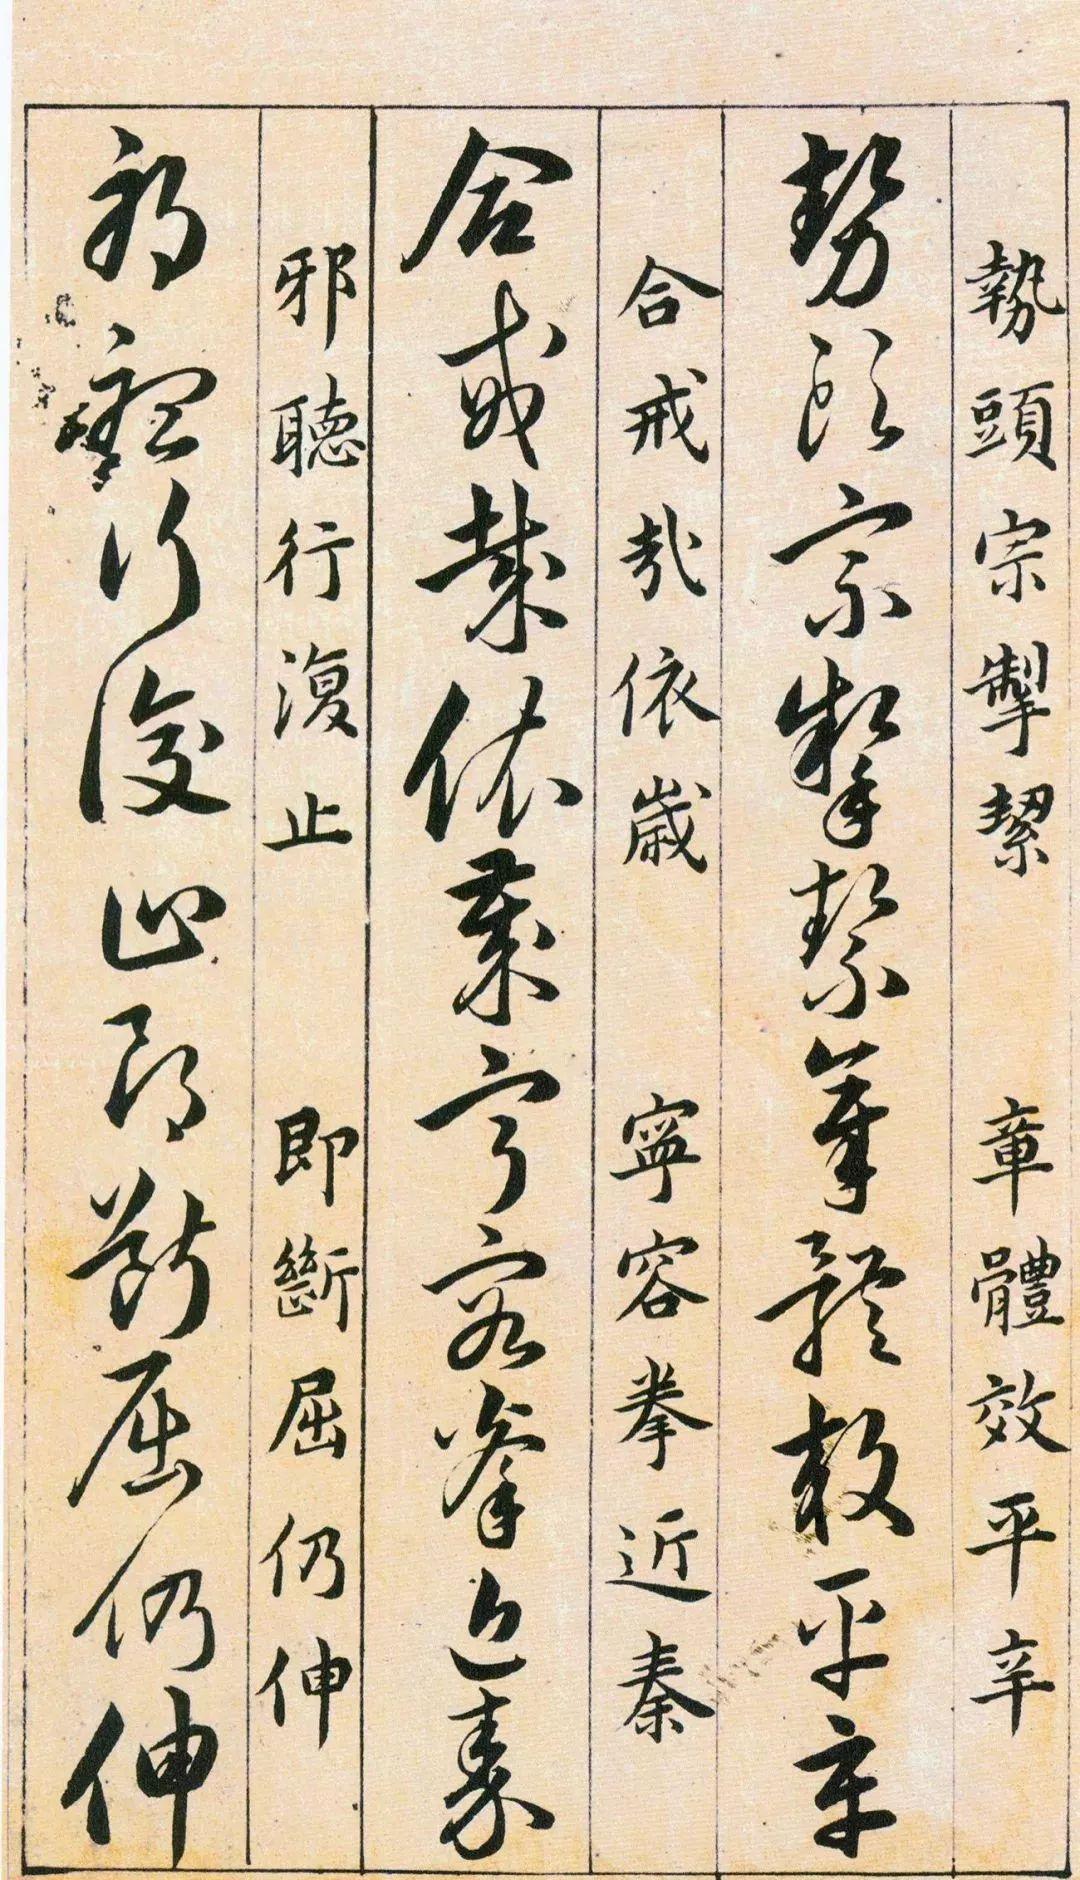 勢頭宗掣絜　章體效平辛
勢頭宗掣絜章體效平辛
合戒哉依歲　寧容拳近秦
合戒哉依歲寧容拳近秦
邪聽行復止　即斷屈仍伸
邪聽行復止即斷屈仍伸